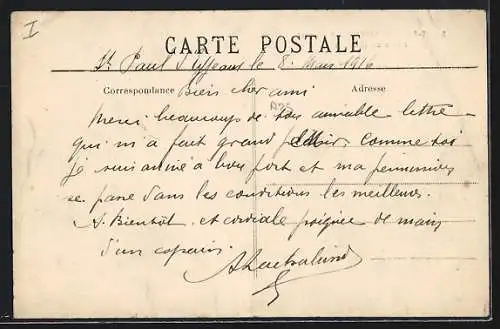 I
CARTE POSTALE
St Paul d'Uffeaus le 8 Mars 1916
Correspondance Adresse
Bien cher ami
Merci beaucoup de ton aimable lettre
qui m'a fait grand plaisir. Comme toi
je suis arrivé à bon port et ma permission
se passe dans les conditions les meilleures.
A Bientôt et cordiale poignée de main
d'un copain.